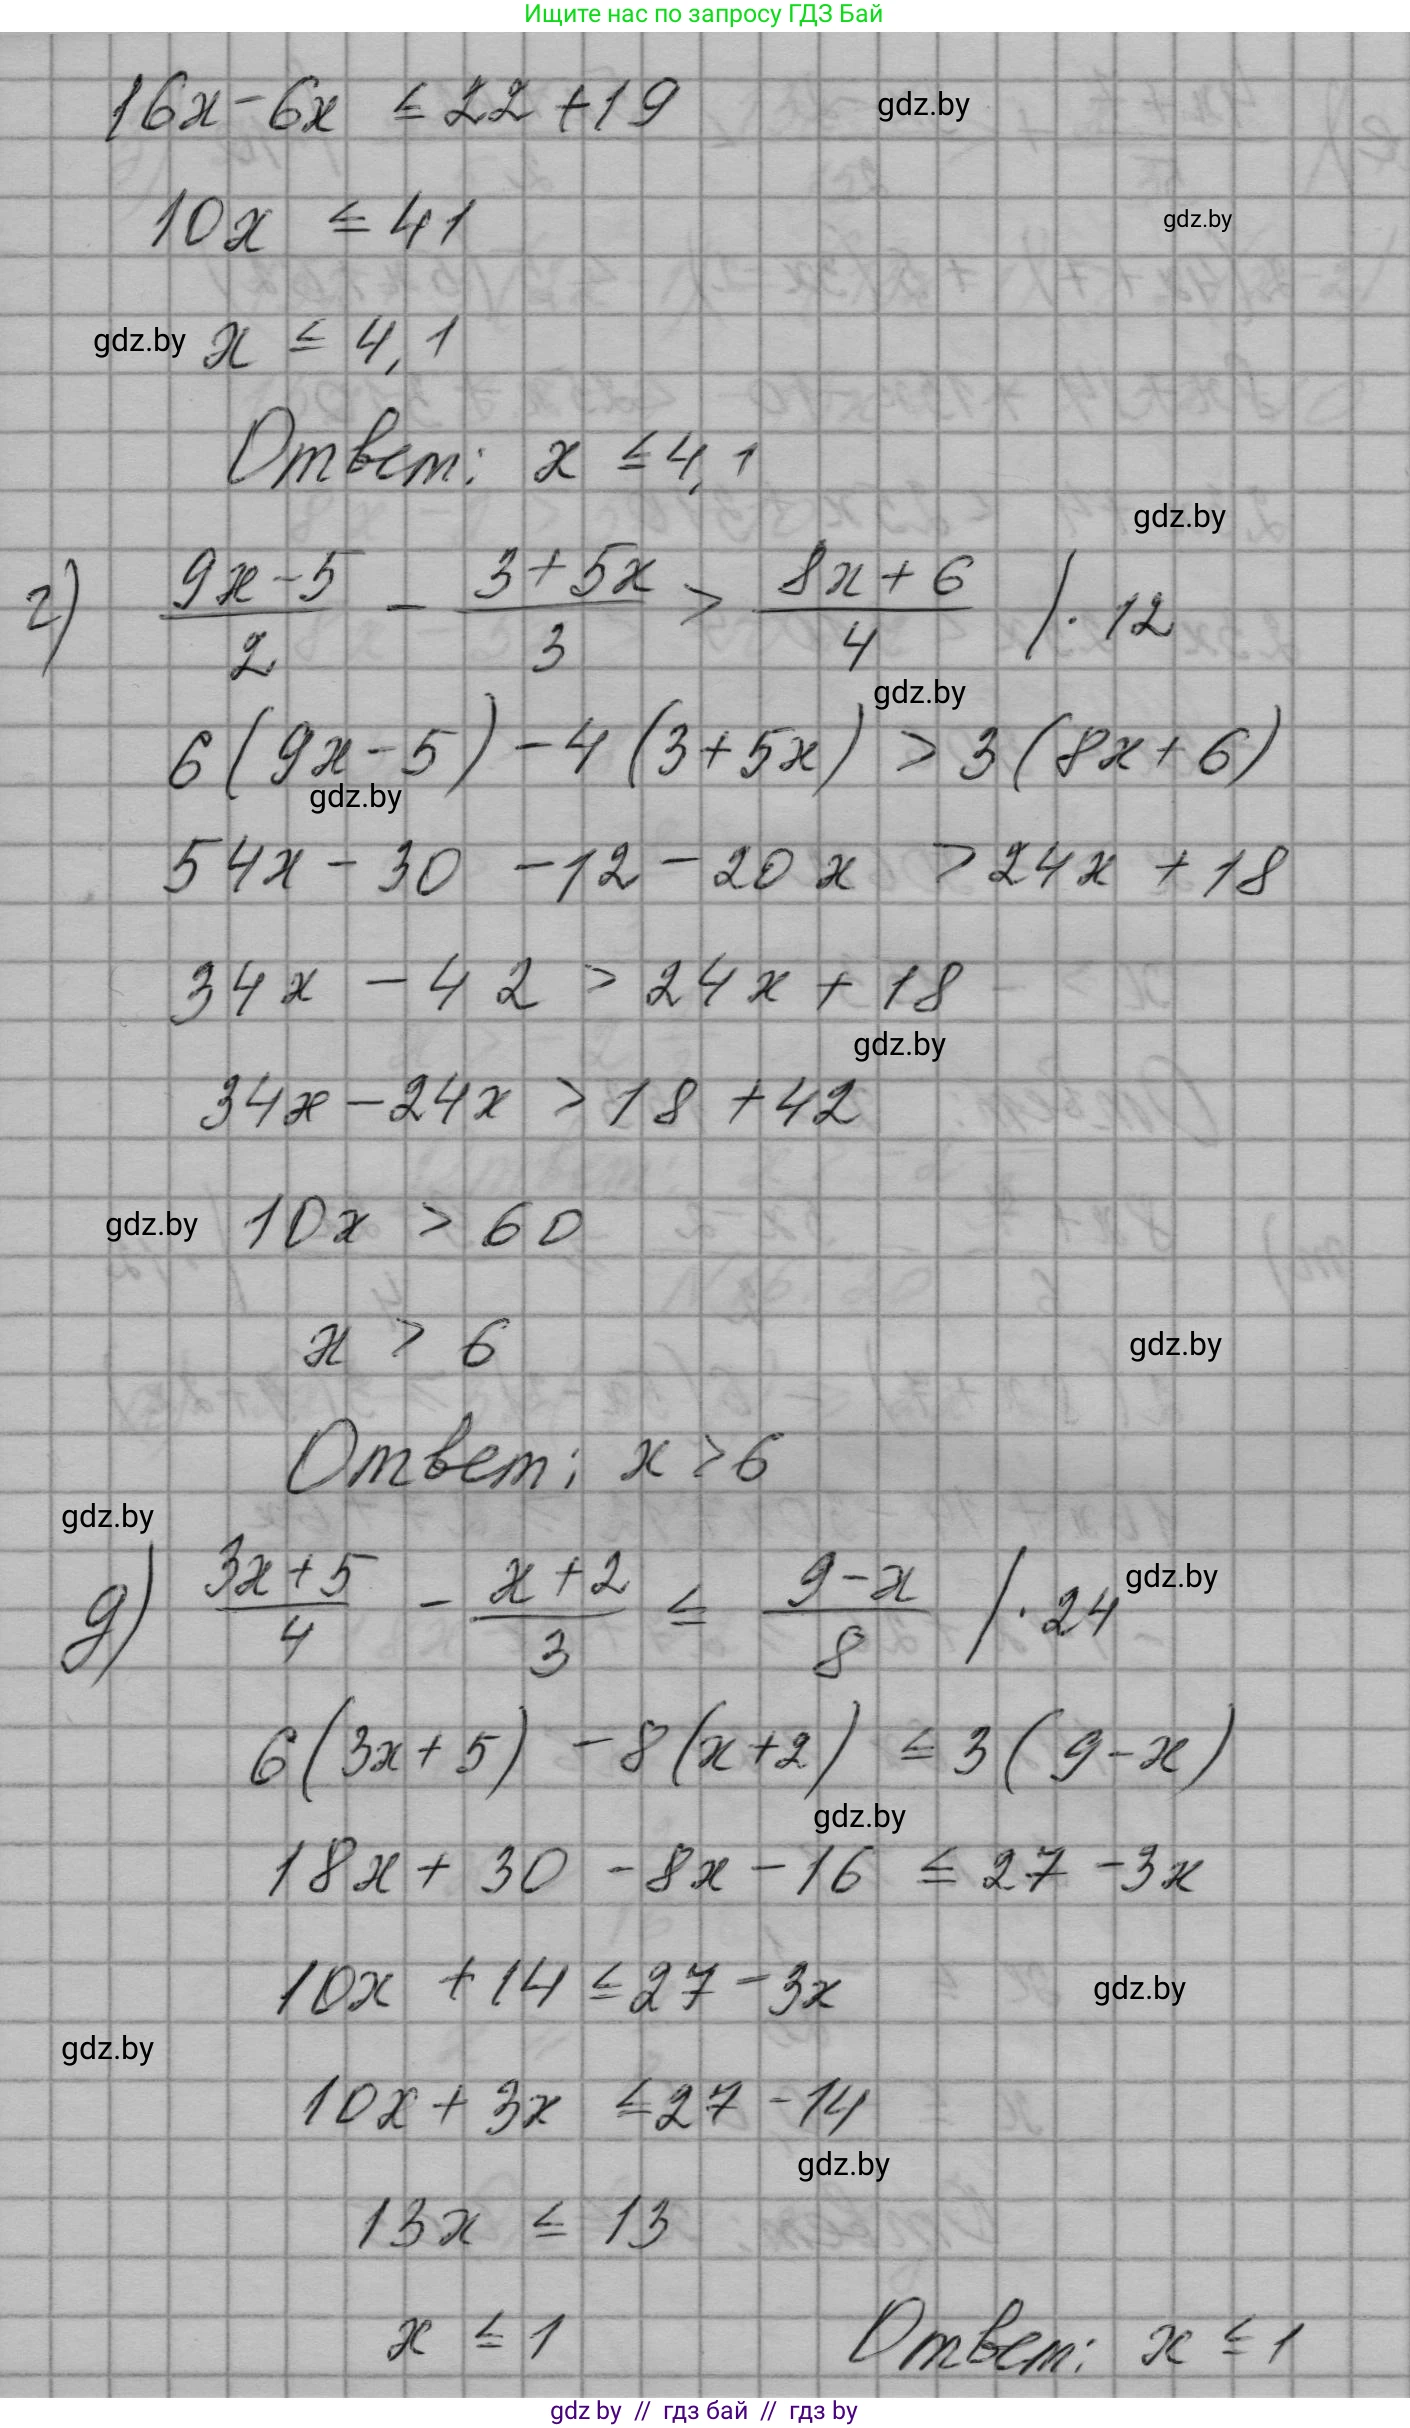 Ищите нас по запросу ГДЗ Бай
16x - 6x ≤ 22 + 19
gdz.by
10x ≤ 41
gdz.by
gdz.by
x ≤ 4,1
Ответ: x ≤ 4,1
gdz.by
г) (9x-5)/2 - (3+5x)/3 > (8x+6)/4 /·12
gdz.by
6(9x-5) - 4(3+5x) > 3(8x+6)
gdz.by
54x - 30 - 12 - 20x > 24x + 18
34x - 42 > 24x + 18
gdz.by
34x - 24x > 18 + 42
gdz.by
10x > 60
x > 6
gdz.by
Ответ: x > 6
gdz.by
д) (3x+5)/4 - (x+2)/3 ≤ (9-x)/8 /·24
gdz.by
6(3x+5) - 8(x+2) ≤ 3(9-x)
gdz.by
18x + 30 - 8x - 16 ≤ 27 - 3x
10x + 14 ≤ 27 - 3x
gdz.by
gdz.by
10x + 3x ≤ 27 - 14
gdz.by
13x ≤ 13
x ≤ 1 Ответ: x ≤ 1
gdz by // гдз бай // гдз by